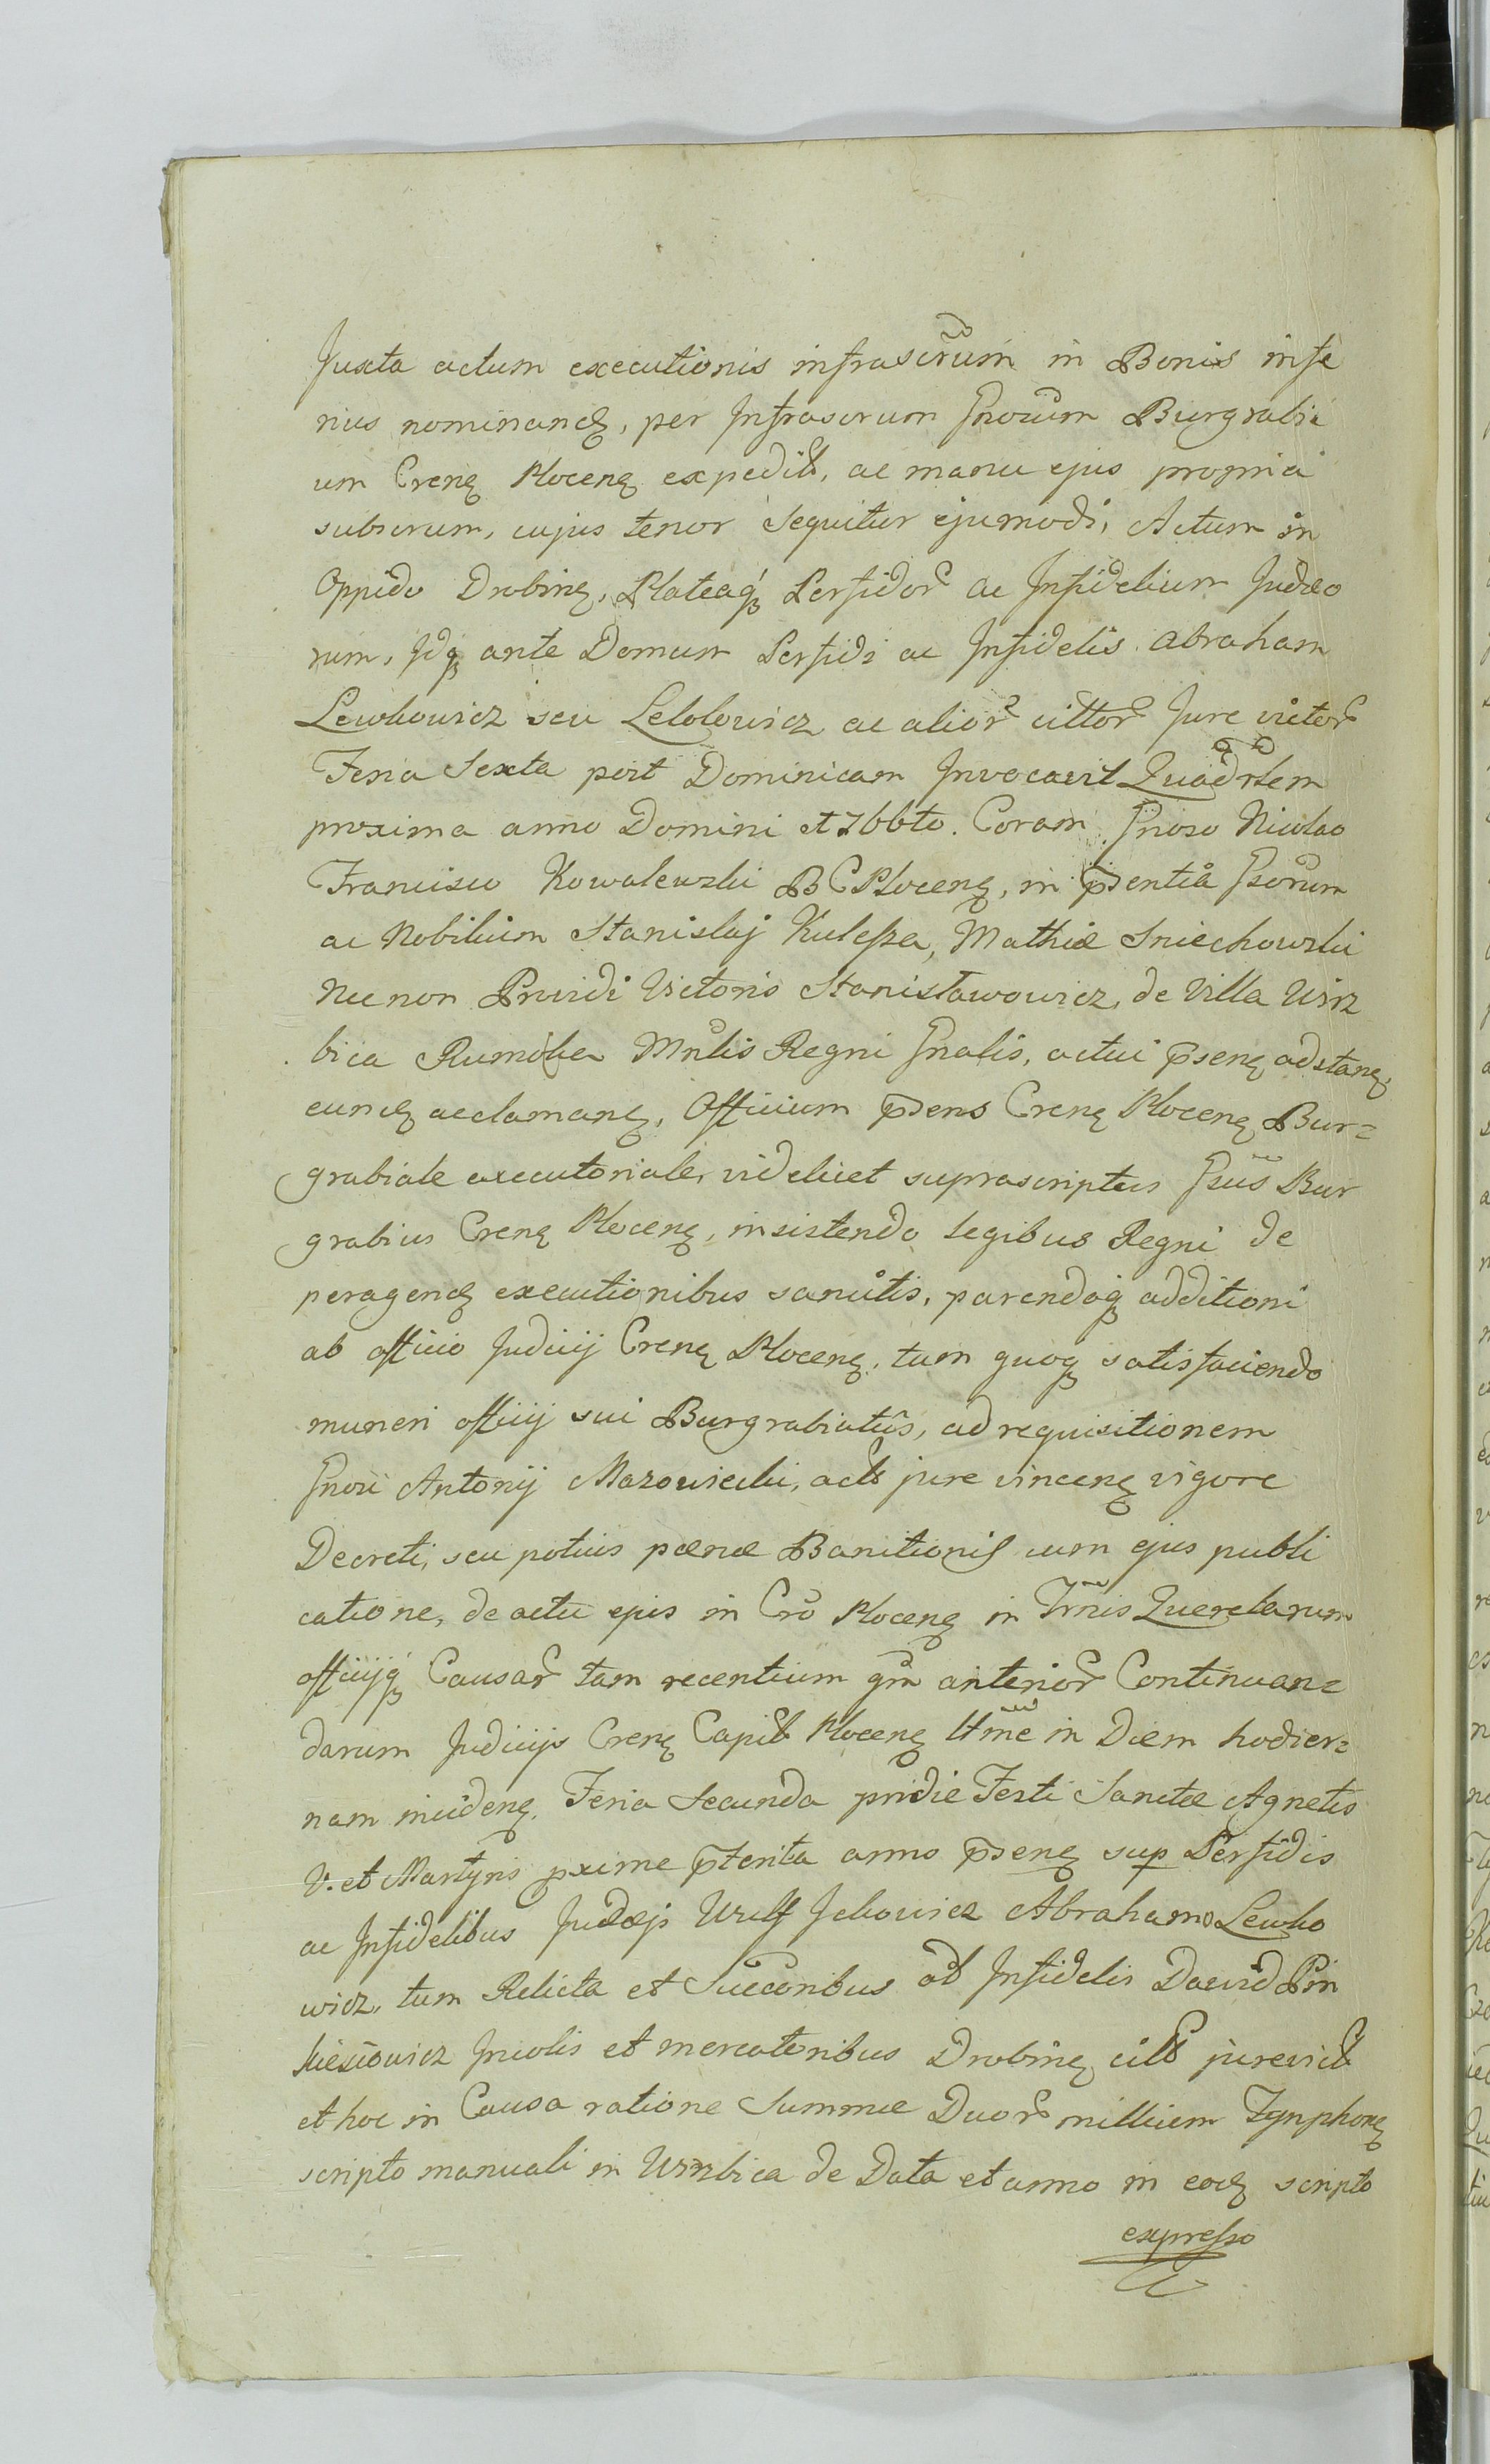 Juxta actum executionis infrascrūm in Bonis infe
rius nominanę, per Infrascrum Gnosum Burgrabi
um Crenę Plocenę expedit, ac manu ejus propria
subscrum, cujus tenor sequitur ejusmodi, Actum in
Oppido Drobinę, Plateaq Perfidor ac Infidelium Judæo
rum, Idq ante Domum Perfidi ac Infidelis Abraham
Lewkowicz seu Lelolowicz ac alior cittor Jure victor
Feria Sexta post Dominicam Invocavit Quadrlem
proxima anno Domini 1766to. Coram Gnoso Nicolao
Francisco Kowalewski BCPlocenę, in psentiâ Gsorum
ac Nobilium Stanislaj Kulesza, Mathiæ Sniechowski
nec non Providi Victoris Stanisławowicz, de Villa Wirz
bica Mnlis Regni Gnalis, actui psenę adstanę,
eundę acclamanę, Officium psens Crenę Plocenę Bur=
grabiale executoriale, videlicet suprascriptus Gsus Bur
grabius Crenę Plocenę, insistendo legibus Regni de
peragendę executionibus sancitis, parendoq additioni
ab officio Judicij Crenę Plocenę, tum quoq satisfaciendo
muneri officij sui Burgrabiatûs, ad requisitionem
Gnosi Antonij Mazowiecki, actł jure vincenę vigore
Decreti, seu potius pœnæ Banitionis cum ejus publi
catione, de actu ejus in Crō Plocenę in Trmis Querelarum
officijq Causar tam recentium qm anterior Continuan=
darum Judicijs Crenę Capit Plocenę ltme in Diem hodier=
nam incidenę. Feria Secunda pridie Festi Sanctæ Agnetis
V. et Martyris pxime pterita anno psenę sup Perfidis
ac Infidelibus Judæjs Wulf Jckowicz Abrahamo Lewko
wicz, tum Relicta et Succoribus od Infidelis Dawid Pin
kiesiowicz Incolis et mercatoribus Drobinę citł jurevictł
et hoc in Causa ratione Summæ Duor millium Tynphonę
scripto manuali in Wirzbica de Data et anno in eodę scripto
expresso